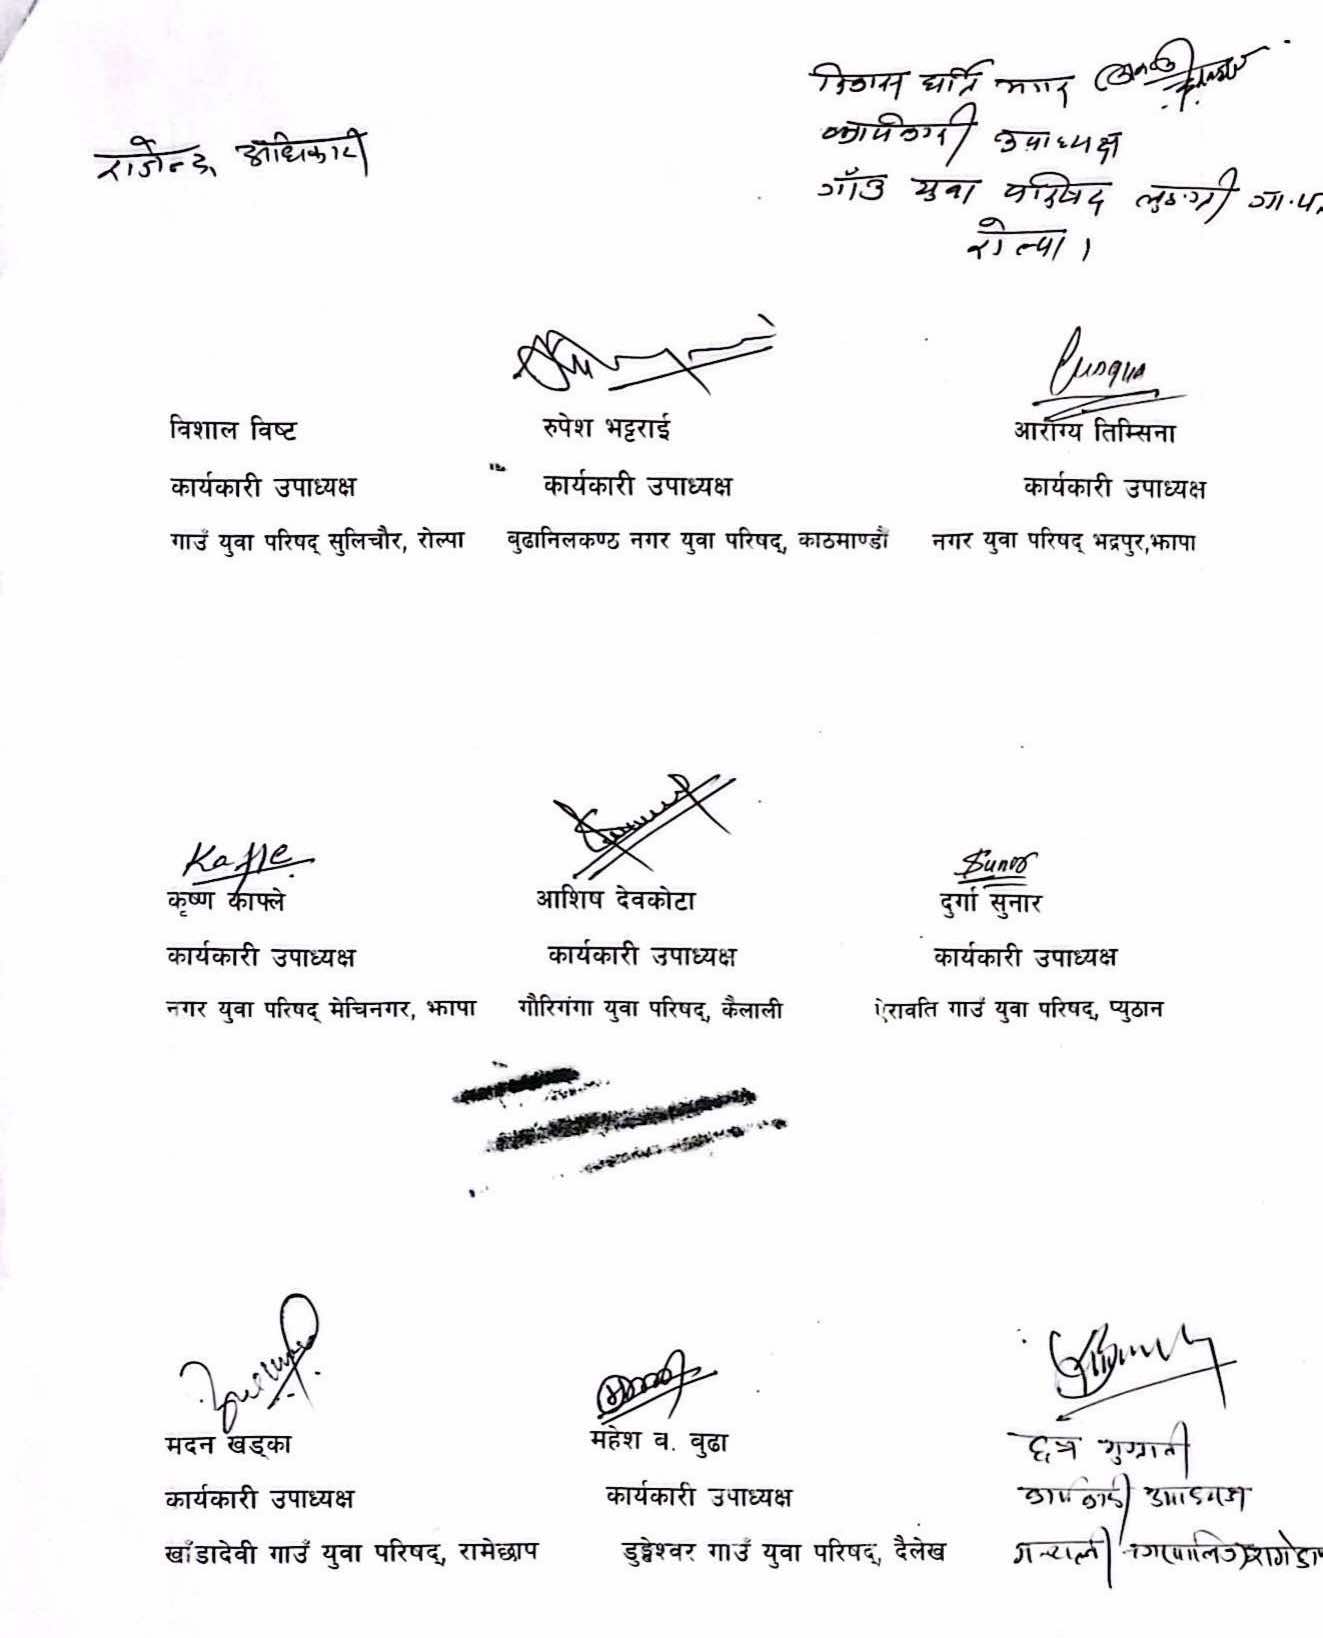 विकास घर्ति मगर
कार्यकारी उपाध्यक्ष
गाँउ युवा परिषद लुङग्री गा.पा
रोल्पा।
राजेन्द्र अधिकारी
विशाल विष्ट रुपेश भट्टराई आरोग्य तिम्सिना
कार्यकारी उपाध्यक्ष कार्यकारी उपाध्यक्ष कार्यकारी उपाध्यक्ष
गाउँ युवा परिषद् सुलिचौर, रोल्पा बुढानिलकण्ठ नगर युवा परिषद्, काठमाण्डौं नगर युवा परिषद् भद्रपुर,झापा
Kafle
कृष्ण काफ्ले आशिष देवकोटा दुर्गा सुनार
कार्यकारी उपाध्यक्ष कार्यकारी उपाध्यक्ष कार्यकारी उपाध्यक्ष
नगर युवा परिषद् मेचिनगर, झापा गौरिगंगा युवा परिषद्, कैलाली ऐरावति गाउँ युवा परिषद्, प्युठान
मदन खड्का महेश व. बुढा
कार्यकारी उपाध्यक्ष कार्यकारी उपाध्यक्ष कार्यकारी
खाँडादेवी गाउँ युवा परिषद्, रामेछाप डुङ्गेश्वर गाउँ युवा परिषद्, दैलेख मन्थली नगरपालिका